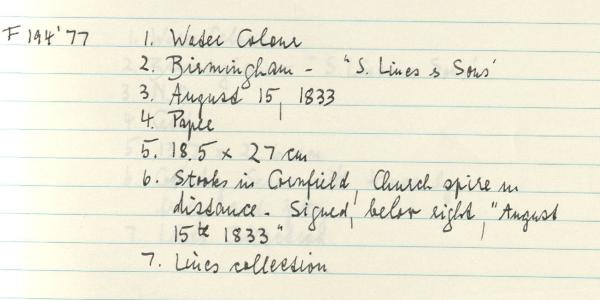 F 194'77 1. Water Colour
2. Birmingham - "S. Lines & Sons'
3. August 15, 1833
4. Paper
5. 18.5 x 27 cm
6. Stooks in Cornfield, Church spire in
distance - Signed, below right, "August
15th 1833"
7. Lines collection